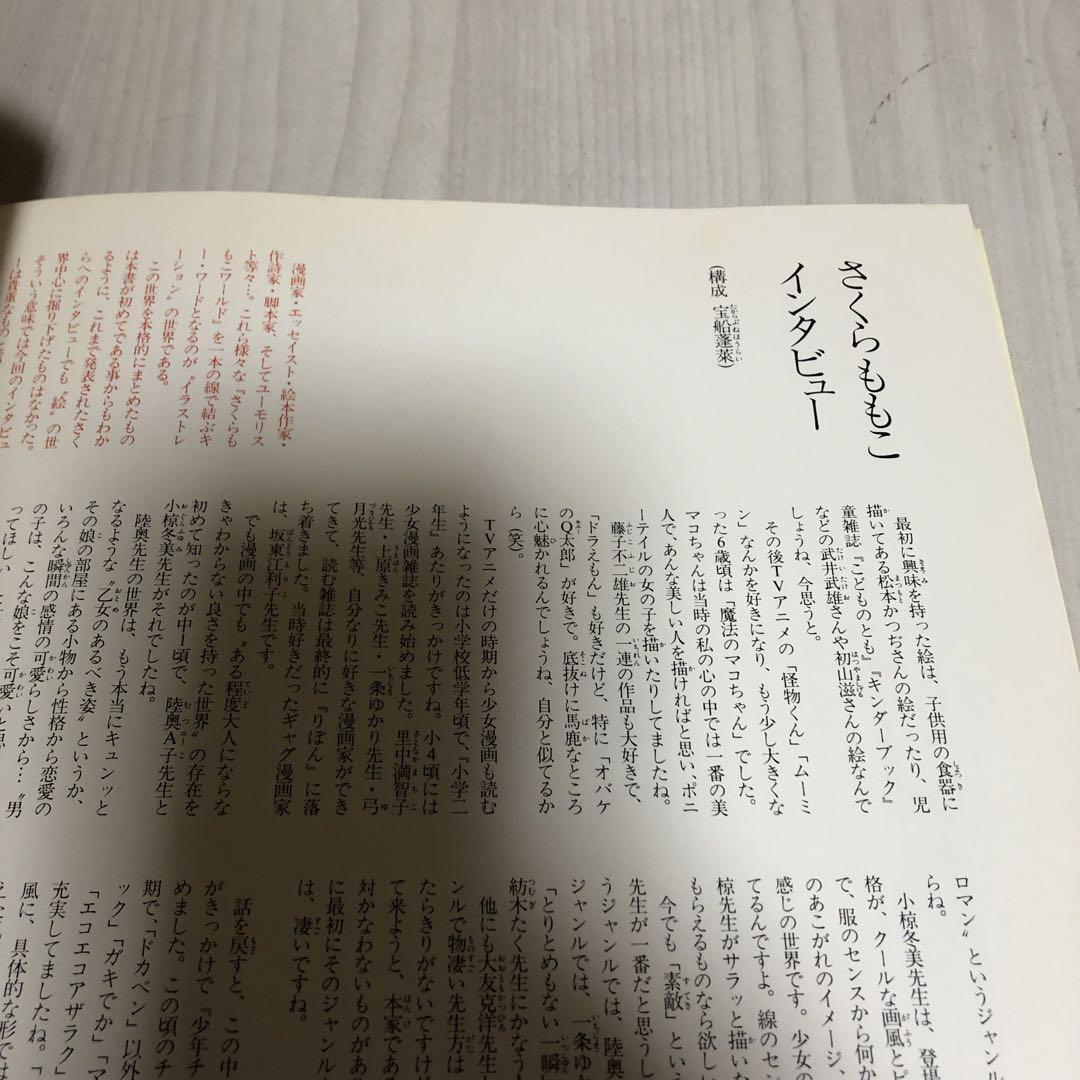 さくらももこ
インタビュー
(構成 宝船蓬莱)
漫画家・エッセイスト・絵本作家・
作詩家・脚本家、そしてユーモリス
ト等々…。これら様々な『さくらも
もこワールド』を一本の線で結ぶキ
ー・ワードとなるのが〝イラストレ
ーション〟の世界である。
この世界を本格的にまとめたもの
は本書が初めてである事からもわか
るように、これまで発表されたさく
らへのインタビューでも〝絵〟の世
界中心に掘り下げたものはなかった。
そういう意味では今回のインタビュ
ーは貴重なもの
最初に興味を持った絵は、子供用の食器に
描いてある松本かつぢさんの絵だったり、児
童雑誌『こどものとも』『キンダーブック』
などの武井武雄さんや初山滋さんの絵なんで
しょうね、今思うと。
その後TVアニメの「怪物くん」「ムーミ
ン」なんかを好きになり、もう少し大きくな
った6歳頃は「魔法のマコちゃん」でした。
マコちゃんは当時の私の心の中では一番の美
人で、あんな美しい人を描ければと思い、ポニ
ーテイルの女の子を描いたりしてましたね。
藤子不二雄先生の一連の作品も大好きで、
「ドラえもん」も好きだけど、特に「オバケ
のQ太郎」が好きで。底抜けに馬鹿なところ
に心魅かれるんでしょうね、自分と似てるか
ら(笑)。
TVアニメだけの時期から少女漫画も読む
ようになったのは小学校低学年頃で、『小学二
年生』あたりがきっかけですね。小4頃には
少女漫画雑誌を読み始めました。里中満智子
先生・上原きみこ先生・一条ゆかり先生・弓
月光先生等、自分なりに好きな漫画家ができ
てきて、読む雑誌は最終的に『りぼん』に落
ち着きました。当時好きだったギャグ漫画家
は、坂東江利子先生です。
でも漫画の中でも〝ある程度大人にならな
きゃわからない良さを持った世界〟の存在を
初めて知ったのが中1頃で、陸奥A子先生と
小椋冬美先生がそれでしたね。
陸奥先生の世界は、もう本当にキュンッと
なるような〝乙女のあるべき姿〟というか、
その娘の部屋にある小物から性格から恋愛の
いろんな瞬間の感情の可愛らしさから…〝男
の子は、こんな娘をこそ可愛いと思
ってほしい
ロマン〟というジャンル
らね。
小椋冬美先生は、登場
格が、クールな画風とピ
で、服のセンスから何か
のあこがれのイメージ、
感じの世界です。少女の
てるんですよ。線のセン
椋先生がサラッと描いた
もらえるものなら欲しい
今でも「素敵」とい
先生が一番だと思うし
うジャンルでは、陸奥
ジャンルでは、一条ゆか
「とりとめもない一瞬
紡木たく先生にかなう人
他にも大友克洋先生
ンルで物凄い先生方は
たらきりがないですけど
て来ようと、本家である
対かなわないものがあ
に最初にそのジャンル
は、凄いですね。
話を戻すと、この中
がきっかけで『少年チ
めました。この頃のチ
期で、「ドカベン」以外
ック」「ガキでか」「マ
「エコエコアザラク」
充実してましたね。
風に、具体的な形では